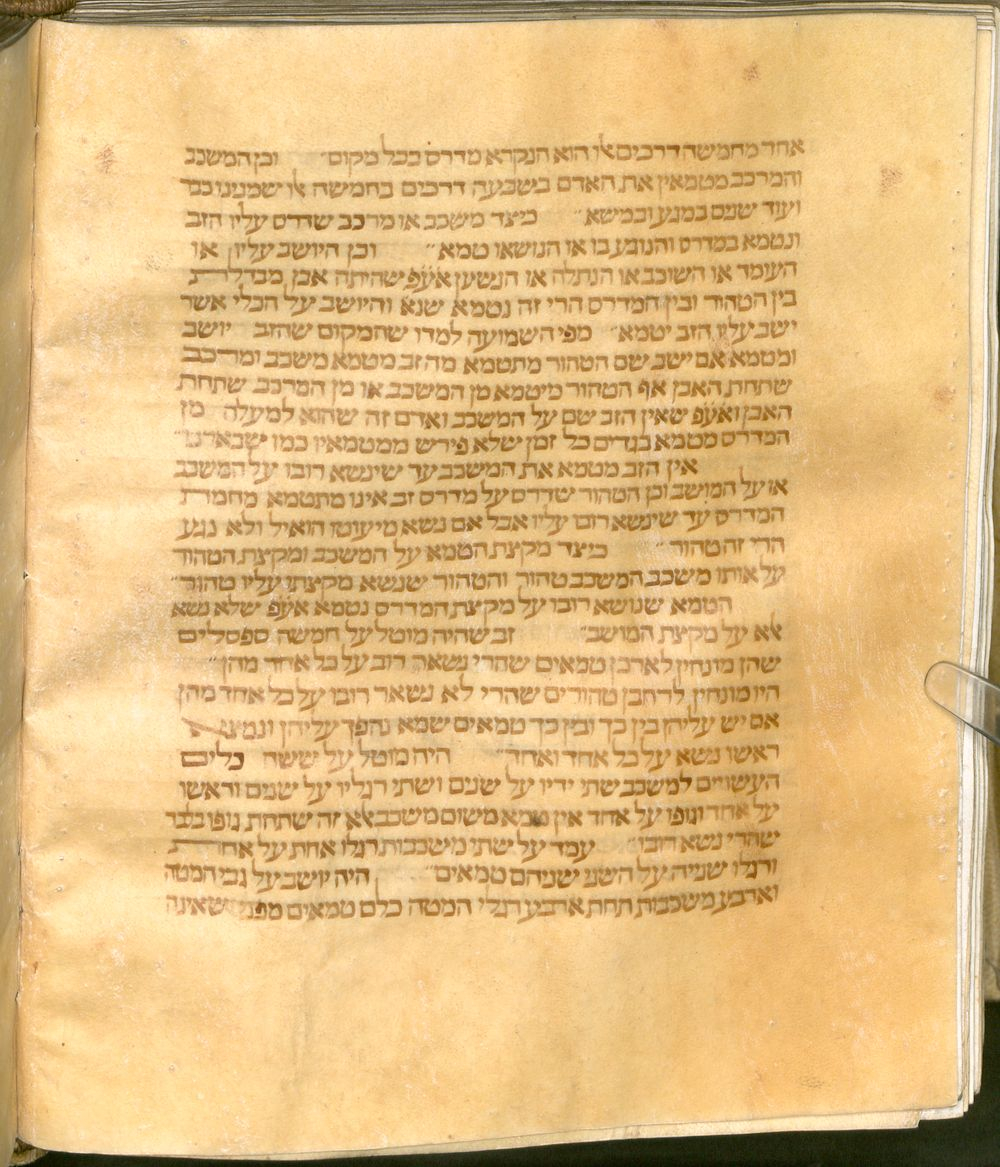 אחד מחמישה דרכים אלו הוא הנקרא מדרס בכל מקום״ וכן המשכב
והמרכב מטמאין את האדם בשבעה דרכים בחמשה אלו שמנינו כבר
ועוד שנים במגע ובמשא״ כיצד משכב או מרכב שדרס עליו הזב
ונטמא במדרס והנוגע בו או הנושאו טמא״ וכן היושב עליו או
העומד או השוכב או הנתלה או הנשען אע֗פ֗ שהיתה אבן מבדלת
בין הטהור ובין המדרס הרי זה נטמא שנא֗ והיושב על הכלי אשר
ישב עליו הזב יטמא״ מפי השמועה למדו שהמקום שהזב יושב
ומטמא אם ישב שם הטהור מתטמא מה הזב מטמא משכב ומרכב
שתחת האבן אף הטהור מיטמא מן המשכב או מן המרכב שתחת
האבן ואע֗פ֗ שאין הזב שם על המשכב ואדם זה שהוא למעלה מן
המדרס מטמא בגדים כל זמן שלא פירש ממטמאיו כמו שבארנו״
אין הזב מטמא את המשכב עד שינשא רובו על המשכב
או על המושב וכן הטהור שדרס על מדרס זב אינו מתטמא מחמת
המדרס עד שינשא רובו עליו אבל אם נשא מיעוטו הואיל ולא נגע
הרי זה טהור״ כיצד מקצת הטמא על המשכב ומקצת הטהור
על אותו משכב המשכב טהור והטהור שנשא מקצתו עליו טהור״
הטמא שנושא רובו על מקצת המדרס נטמא אע֗פ֗ שלא נשא
אלא על מקצת המושב״ זב שהיה מוטל על חמשה ספסלים
שהן מונחין לארכן טמאים שהרי נשאר רוב על כל אחד מהן״
היו מונחין לרחבן טהורים שהרי לא נשאר רובו על כל אחד מהן
אם יש עליהן בין כך ובין כך טמאים שמא נהפך עליהן ונמצא
ראשו נשא על כל אחד ואחד״ היה מוטל על ששה כלים
העשויים למשכב שתי ידיו על שנים ושתי רגליו על שנים וראשו
על אחד וגופו על אחד אין טמא משום משכב אלא זה שתחת גופו בלבד
שהרי נשא רובו״ עמד על שתי משכבות רגלו אחת על אחת
ורגלו שניה על השני שניהם טמאים״ היה יושב על גבי המטה
וארבע משכבות תחת ארבע רגלי המטה כלם טמאים מפני שאינה